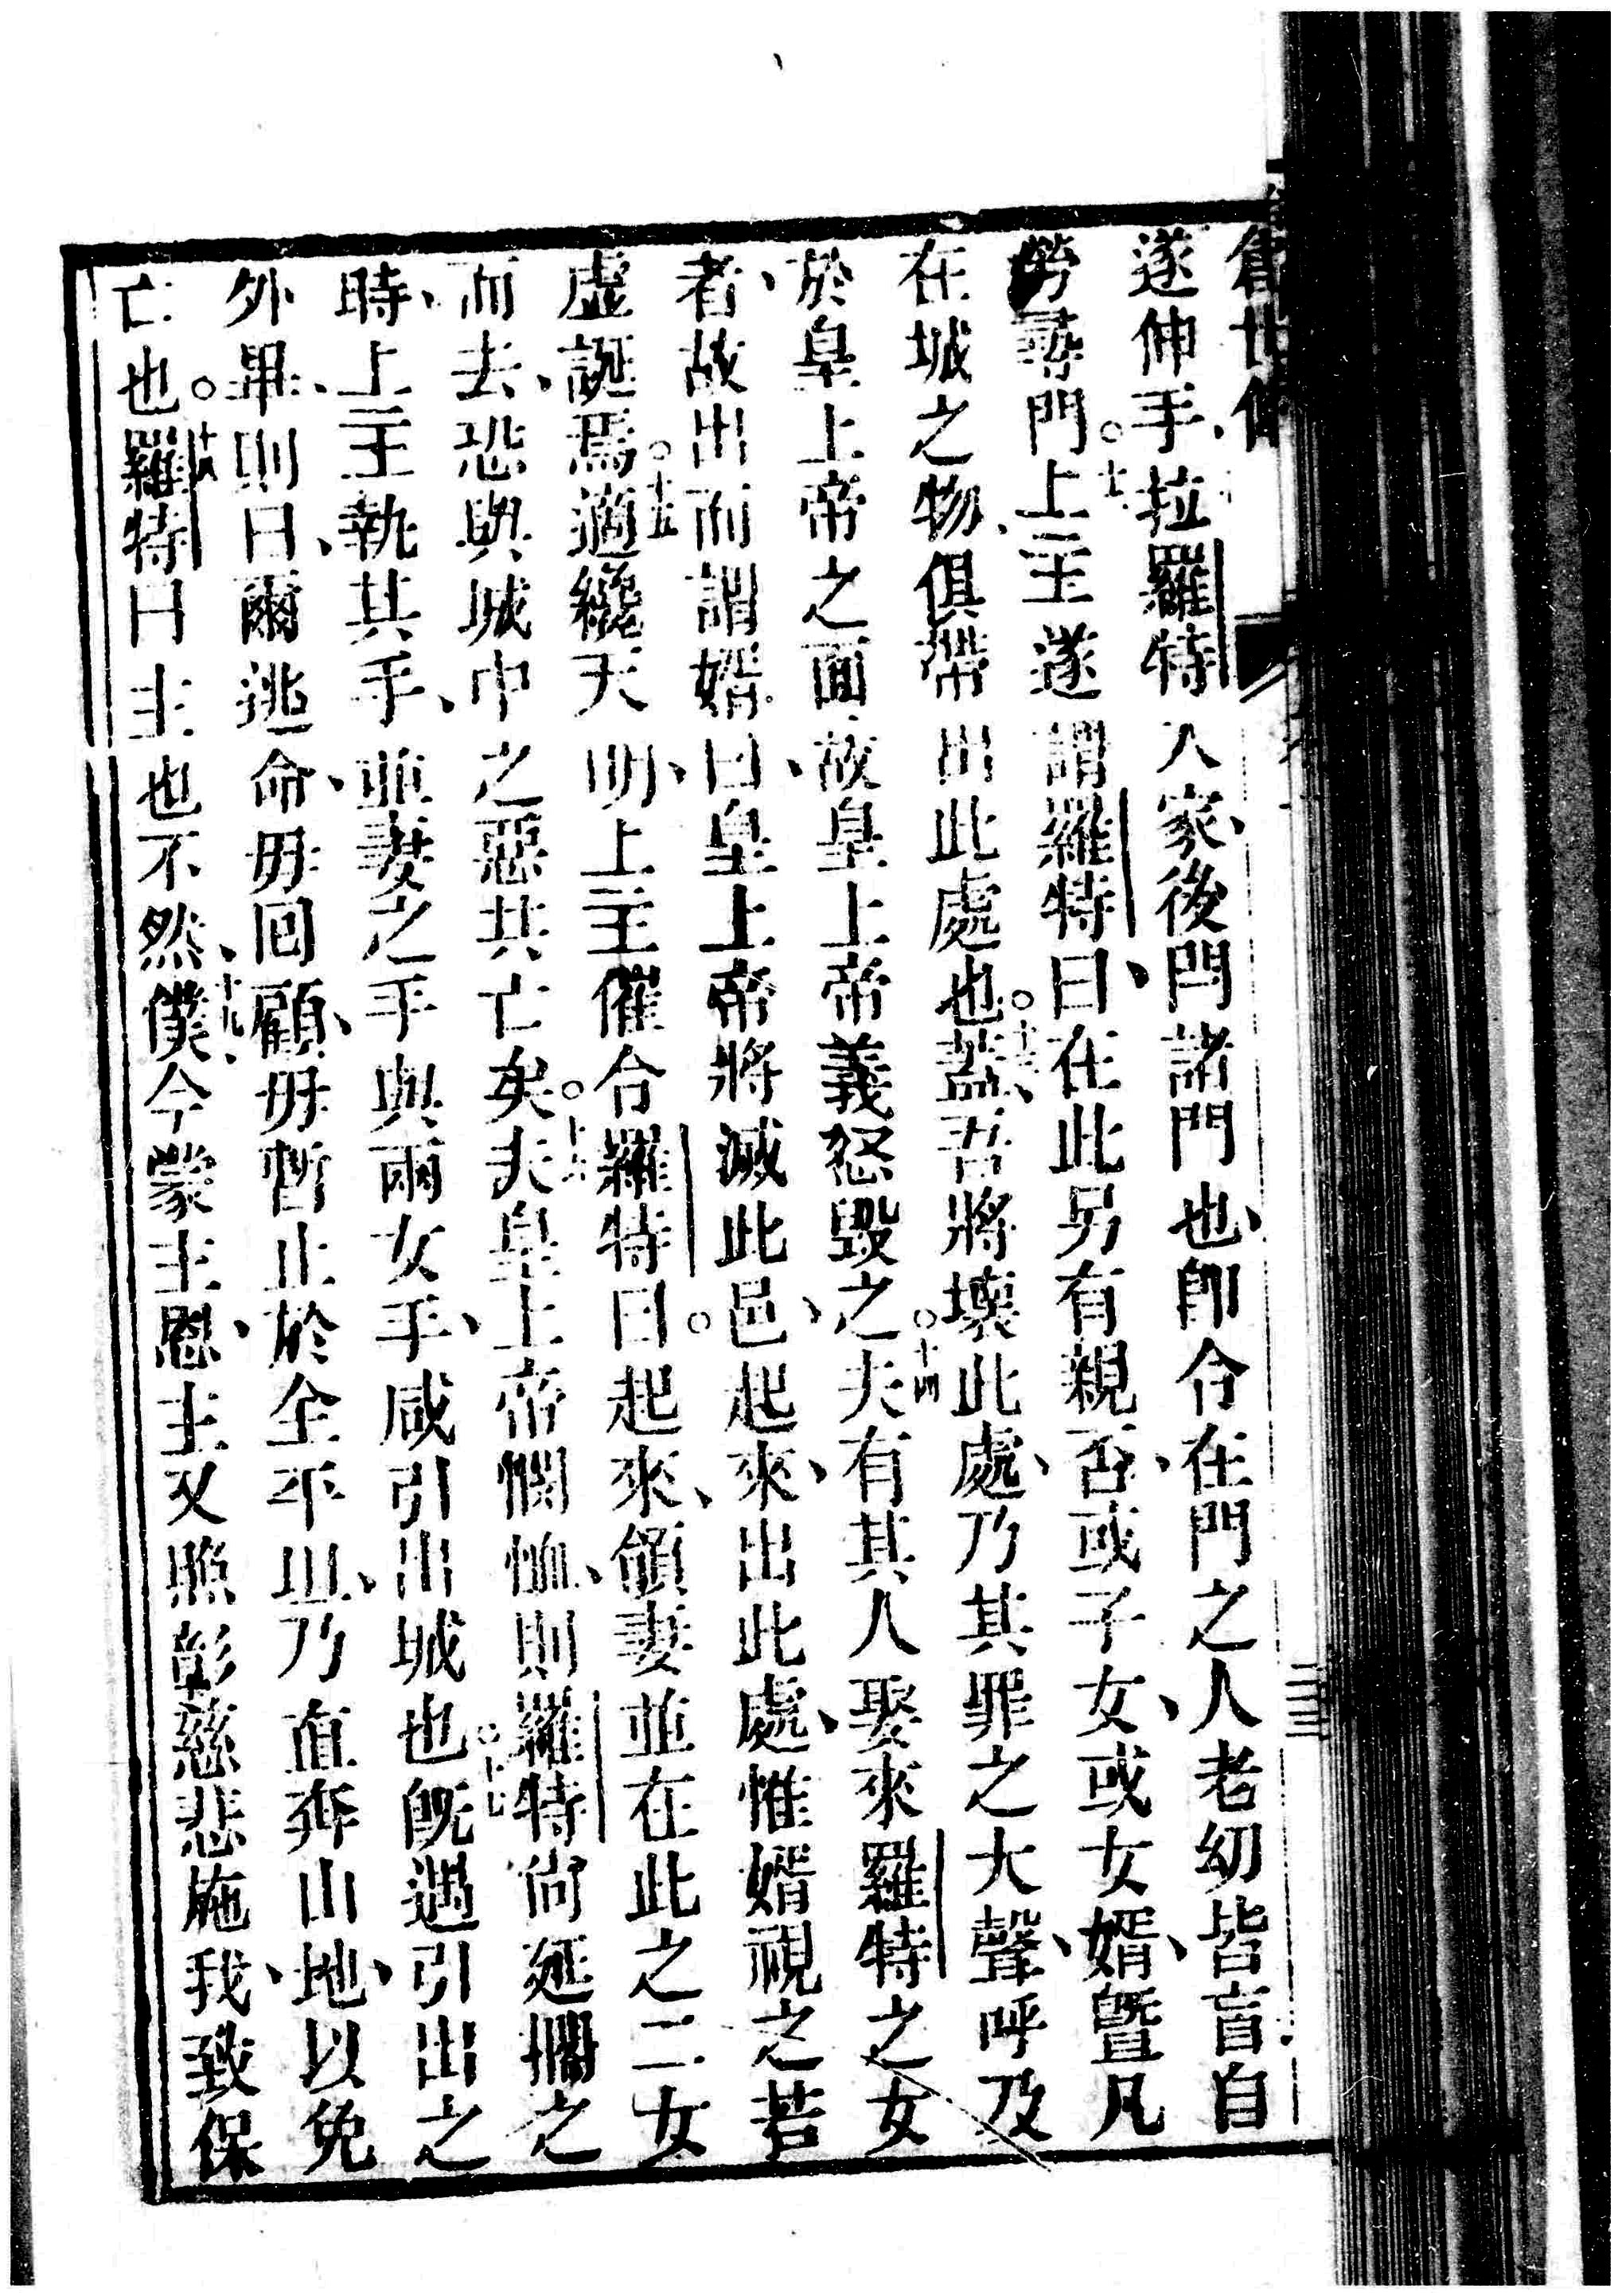 創世傳
遂伸手、拉羅特入家、後閂諸門也、卽令在門之人老幼皆盲自
勞尋門。十二上主遂謂羅特曰、在此另有親否、或子女、或女婿、曁凡
在城之物、俱帶出此處也。十三、蓋吾將壞此處、乃其罪之大聲、呼及
於皇上帝之面故皇上帝義怒毀之。十四夫有其人娶來羅特之女
者、故出而謂婿曰、皇上帝將滅此邑、起來、出此處、惟婿視之若
虛誕焉。十五適纔天明、上主催令羅特曰。起來、領妻並在此之二女
而去、恐與城中之惡共亡矣。十六夫皇上帝憫恤、則羅特尙延擱之
時、上主執其手、並妻之手與兩女手、咸引出城也。十七旣遇引出之
外畢、則曰、爾逃命、毋回顧、毋暫止於全平山、乃直奔山地、以免
亡也。十八羅特曰主也不然、十九、僕今蒙主恩、主又照彰慈悲施我、致保